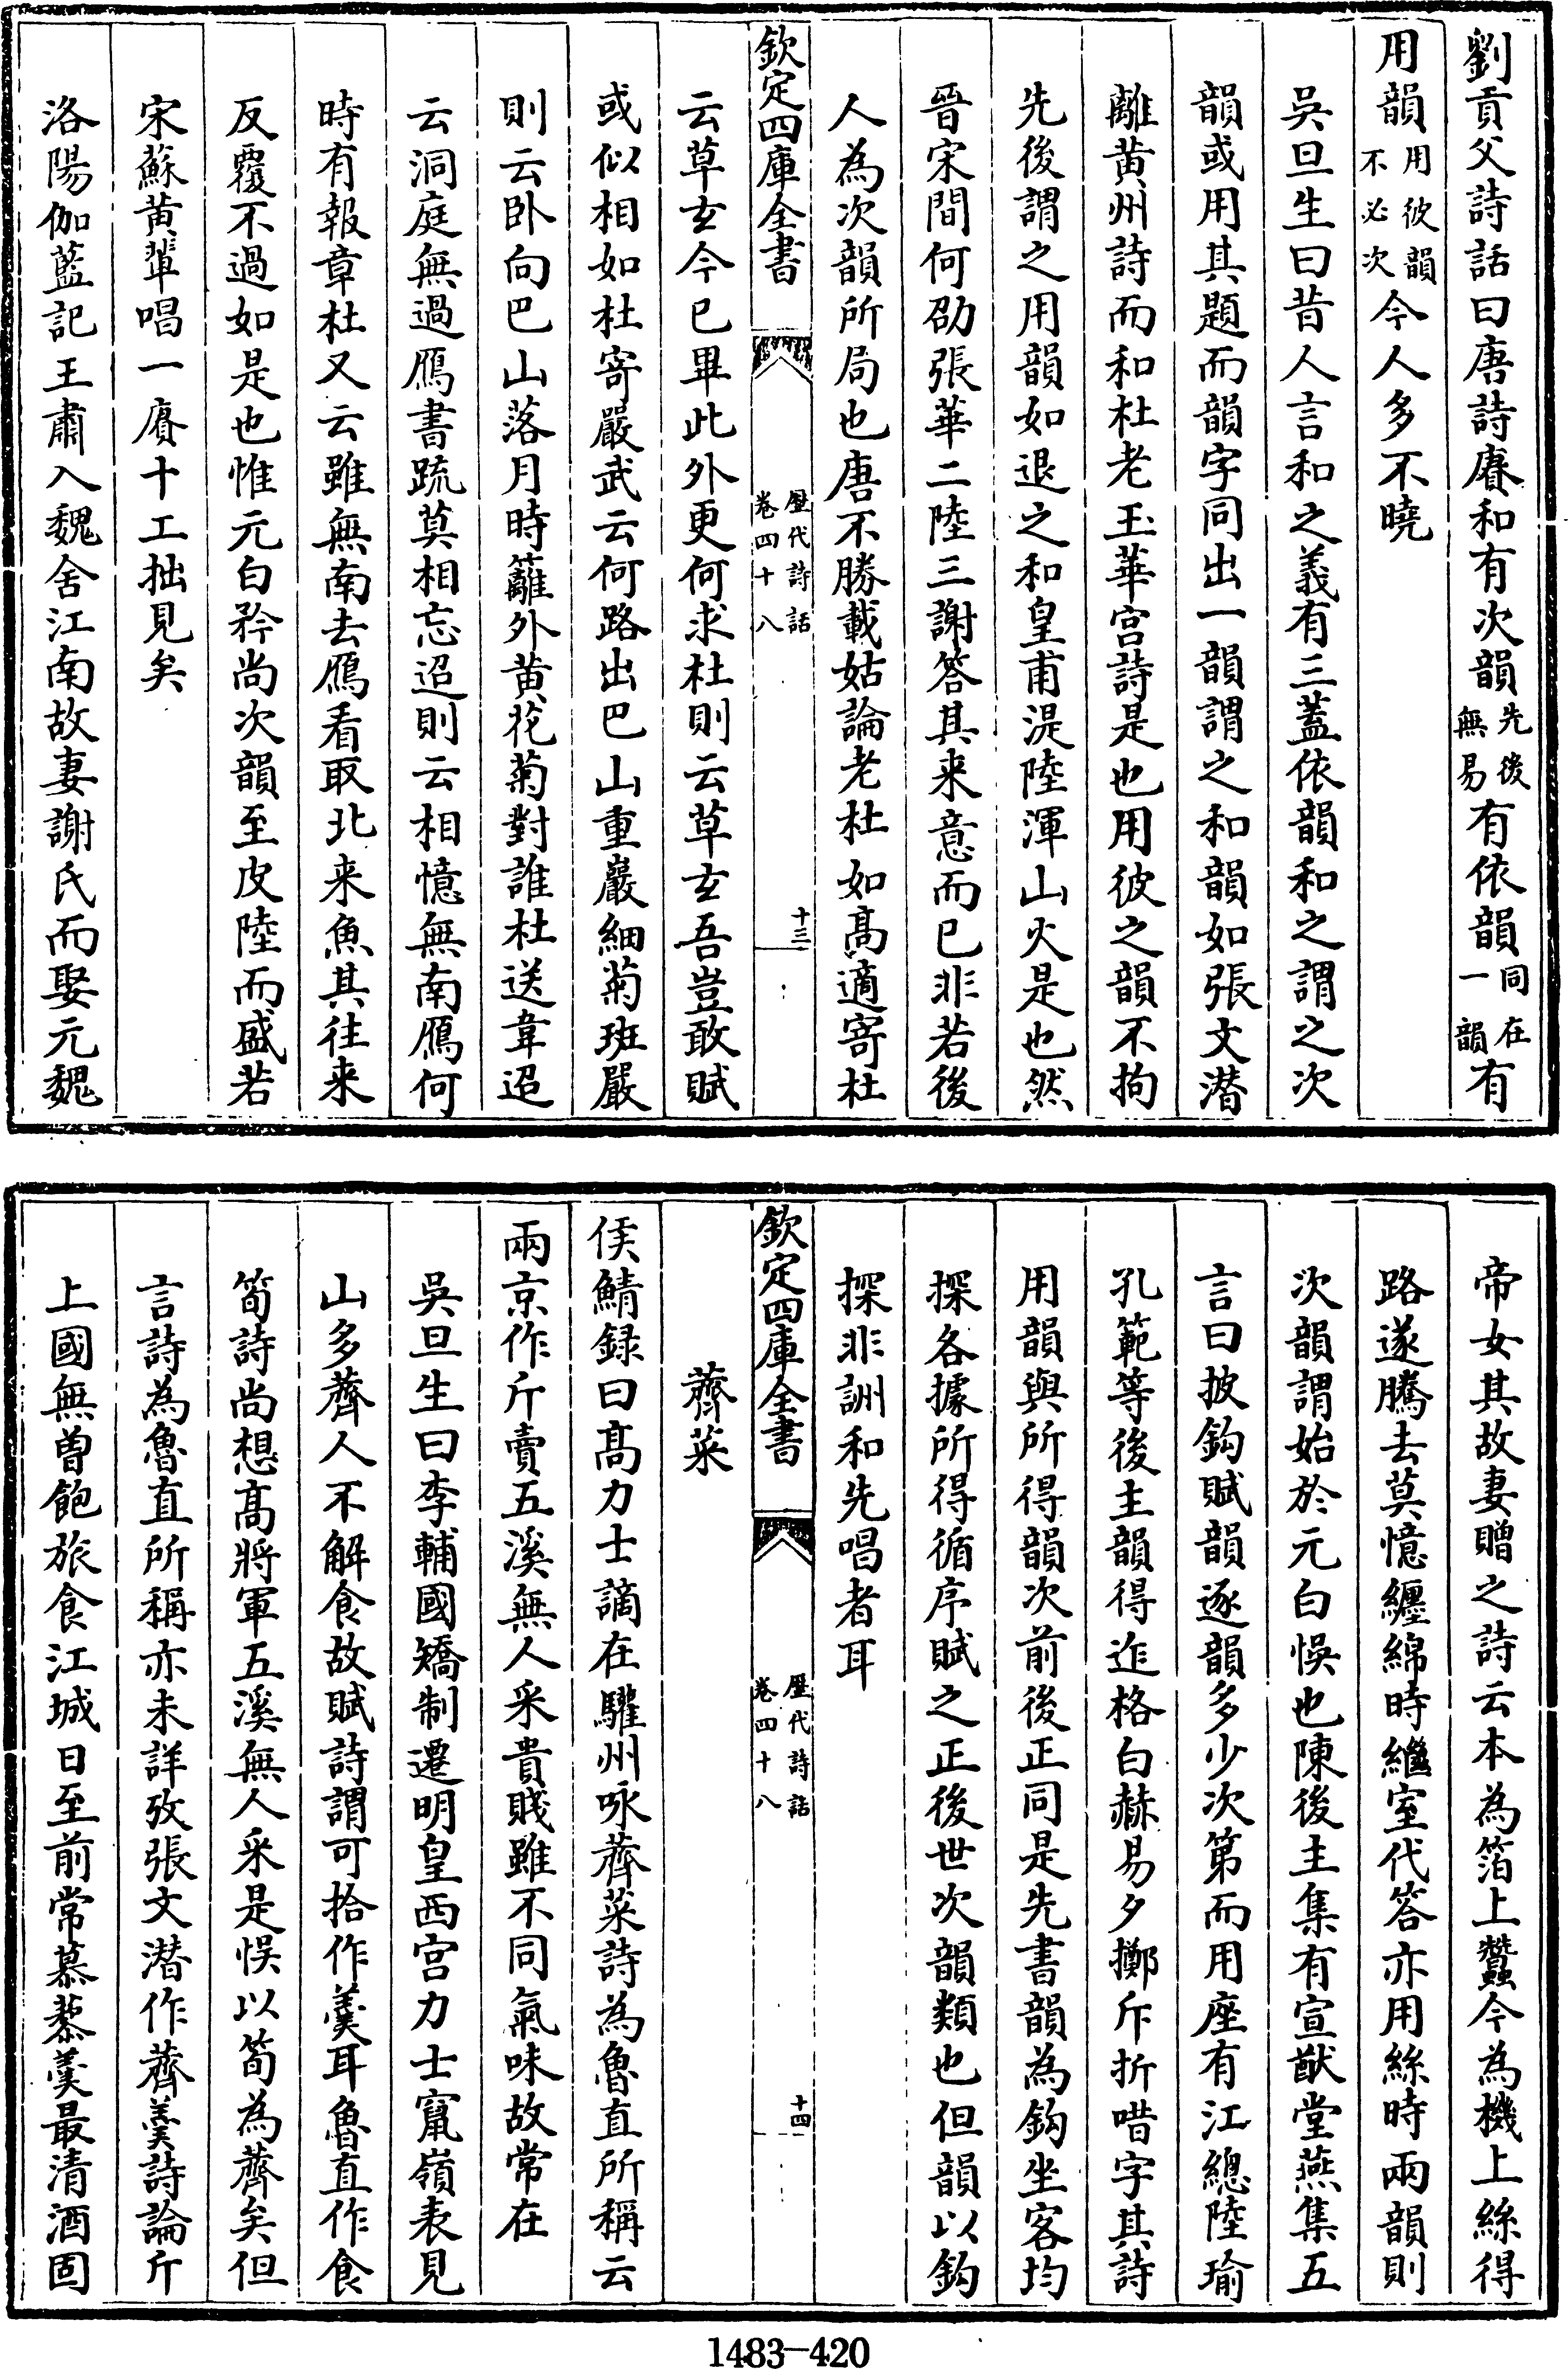 劉貢父詩話曰唐詩賡和有次韻先後無易有依韻同在一韻有
用韻用彼韻不必次今人多不曉
吳旦生曰昔人言和之義有三蓋依韻和之謂之次
韻或用其題而韻字同出一韻謂之和韻如張文潛
離黄州詩而和杜老玉華宫詩是也用彼之韻不拘
先後謂之用韻如退之和皇甫湜陸渾山火是也然
晉宋間何劭張華二陸三謝答其来意而已非若後
人為次韻所局也唐不勝載姑論老杜如髙適寄杜
欽定四庫全書
歷代詩話
卷四十八
十三
云草玄今已畢此外更何求杜則云草玄吾豈敢賦
或似相如杜寄嚴武云何路出巴山重巖細菊班嚴
則云卧向巴山落月時籬外黄花菊對誰杜送韋迢
云洞庭無過鴈書疏莫相忘迢則云相憶無南鴈何
時有報章杜又云雖無南去鴈看取北来魚其往来
反覆不過如是也惟元白矜尚次韻至皮陸而盛若
宋蘇黄輩唱一賡十工拙見矣
洛陽伽藍記王肅入魏舍江南故妻謝氏而娶元魏
帝女其故妻贈之詩云本為箔上蠶今為機上絲得
路遂騰去莫憶纏綿時繼室代答亦用絲時兩韻則
次韻謂始於元白悞也陳後主集有宣猷堂燕集五
言曰披鈎賦韻逐韻多少次第而用座有江總陸瑜
孔範等後主韻得迮格白赫易夕擲斥折唶字其詩
用韻與所得韻次前後正同是先書韻為鈎坐客均
探各據所得循序賦之正後世次韻類也但韻以鈎
探非詶和先唱者耳
欽定四庫全書
歷代詩話
卷四十八
十四
薺菜
侯鯖録曰髙力士謫在驩州咏薺菜詩為魯直所稱云
兩京作斤賣五溪無人采貴賤雖不同氣味故常在
吳旦生曰李輔國矯制遷明皇西宫力士竄嶺表見
山多薺人不解食故賦詩謂可拾作羮耳魯直作食
筍詩尚想髙將軍五溪無人采是悞以筍為薺矣但
言詩為魯直所稱亦未詳攷張文潛作薺羮詩論斤
上國無曾飽旅食江城日至前常慕藜羮最清酒固
1483—420